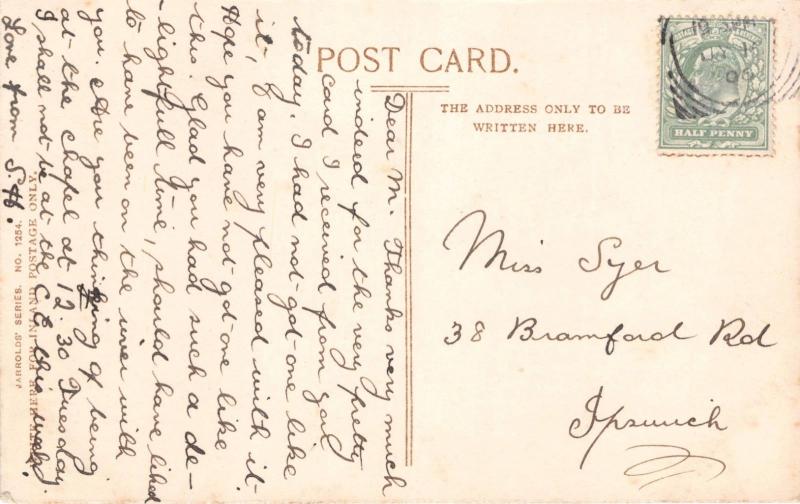 POST CARD.
THE ADDRESS ONLY TO BE
WRITTEN HERE.
HALF PENNY
Miss Syer
38 Bramford Rd
Ipswich
Dear M. Thanks very much
indeed for the very pretty
card I received from you
today. I had not got one like
it, I am very pleased with it
Hope you have not got one like
this. Glad you had such a de-
-lightfull time, should have liked
to have been on the river with
you. Are you thinking of being
at the Chapel at 12.30 Tuesday
I shall not be at the C.E this week.
Love from S.H.
HERE FOR INLAND POSTAGE ONLY.
JARROLDS' SERIES. NO. 1254.